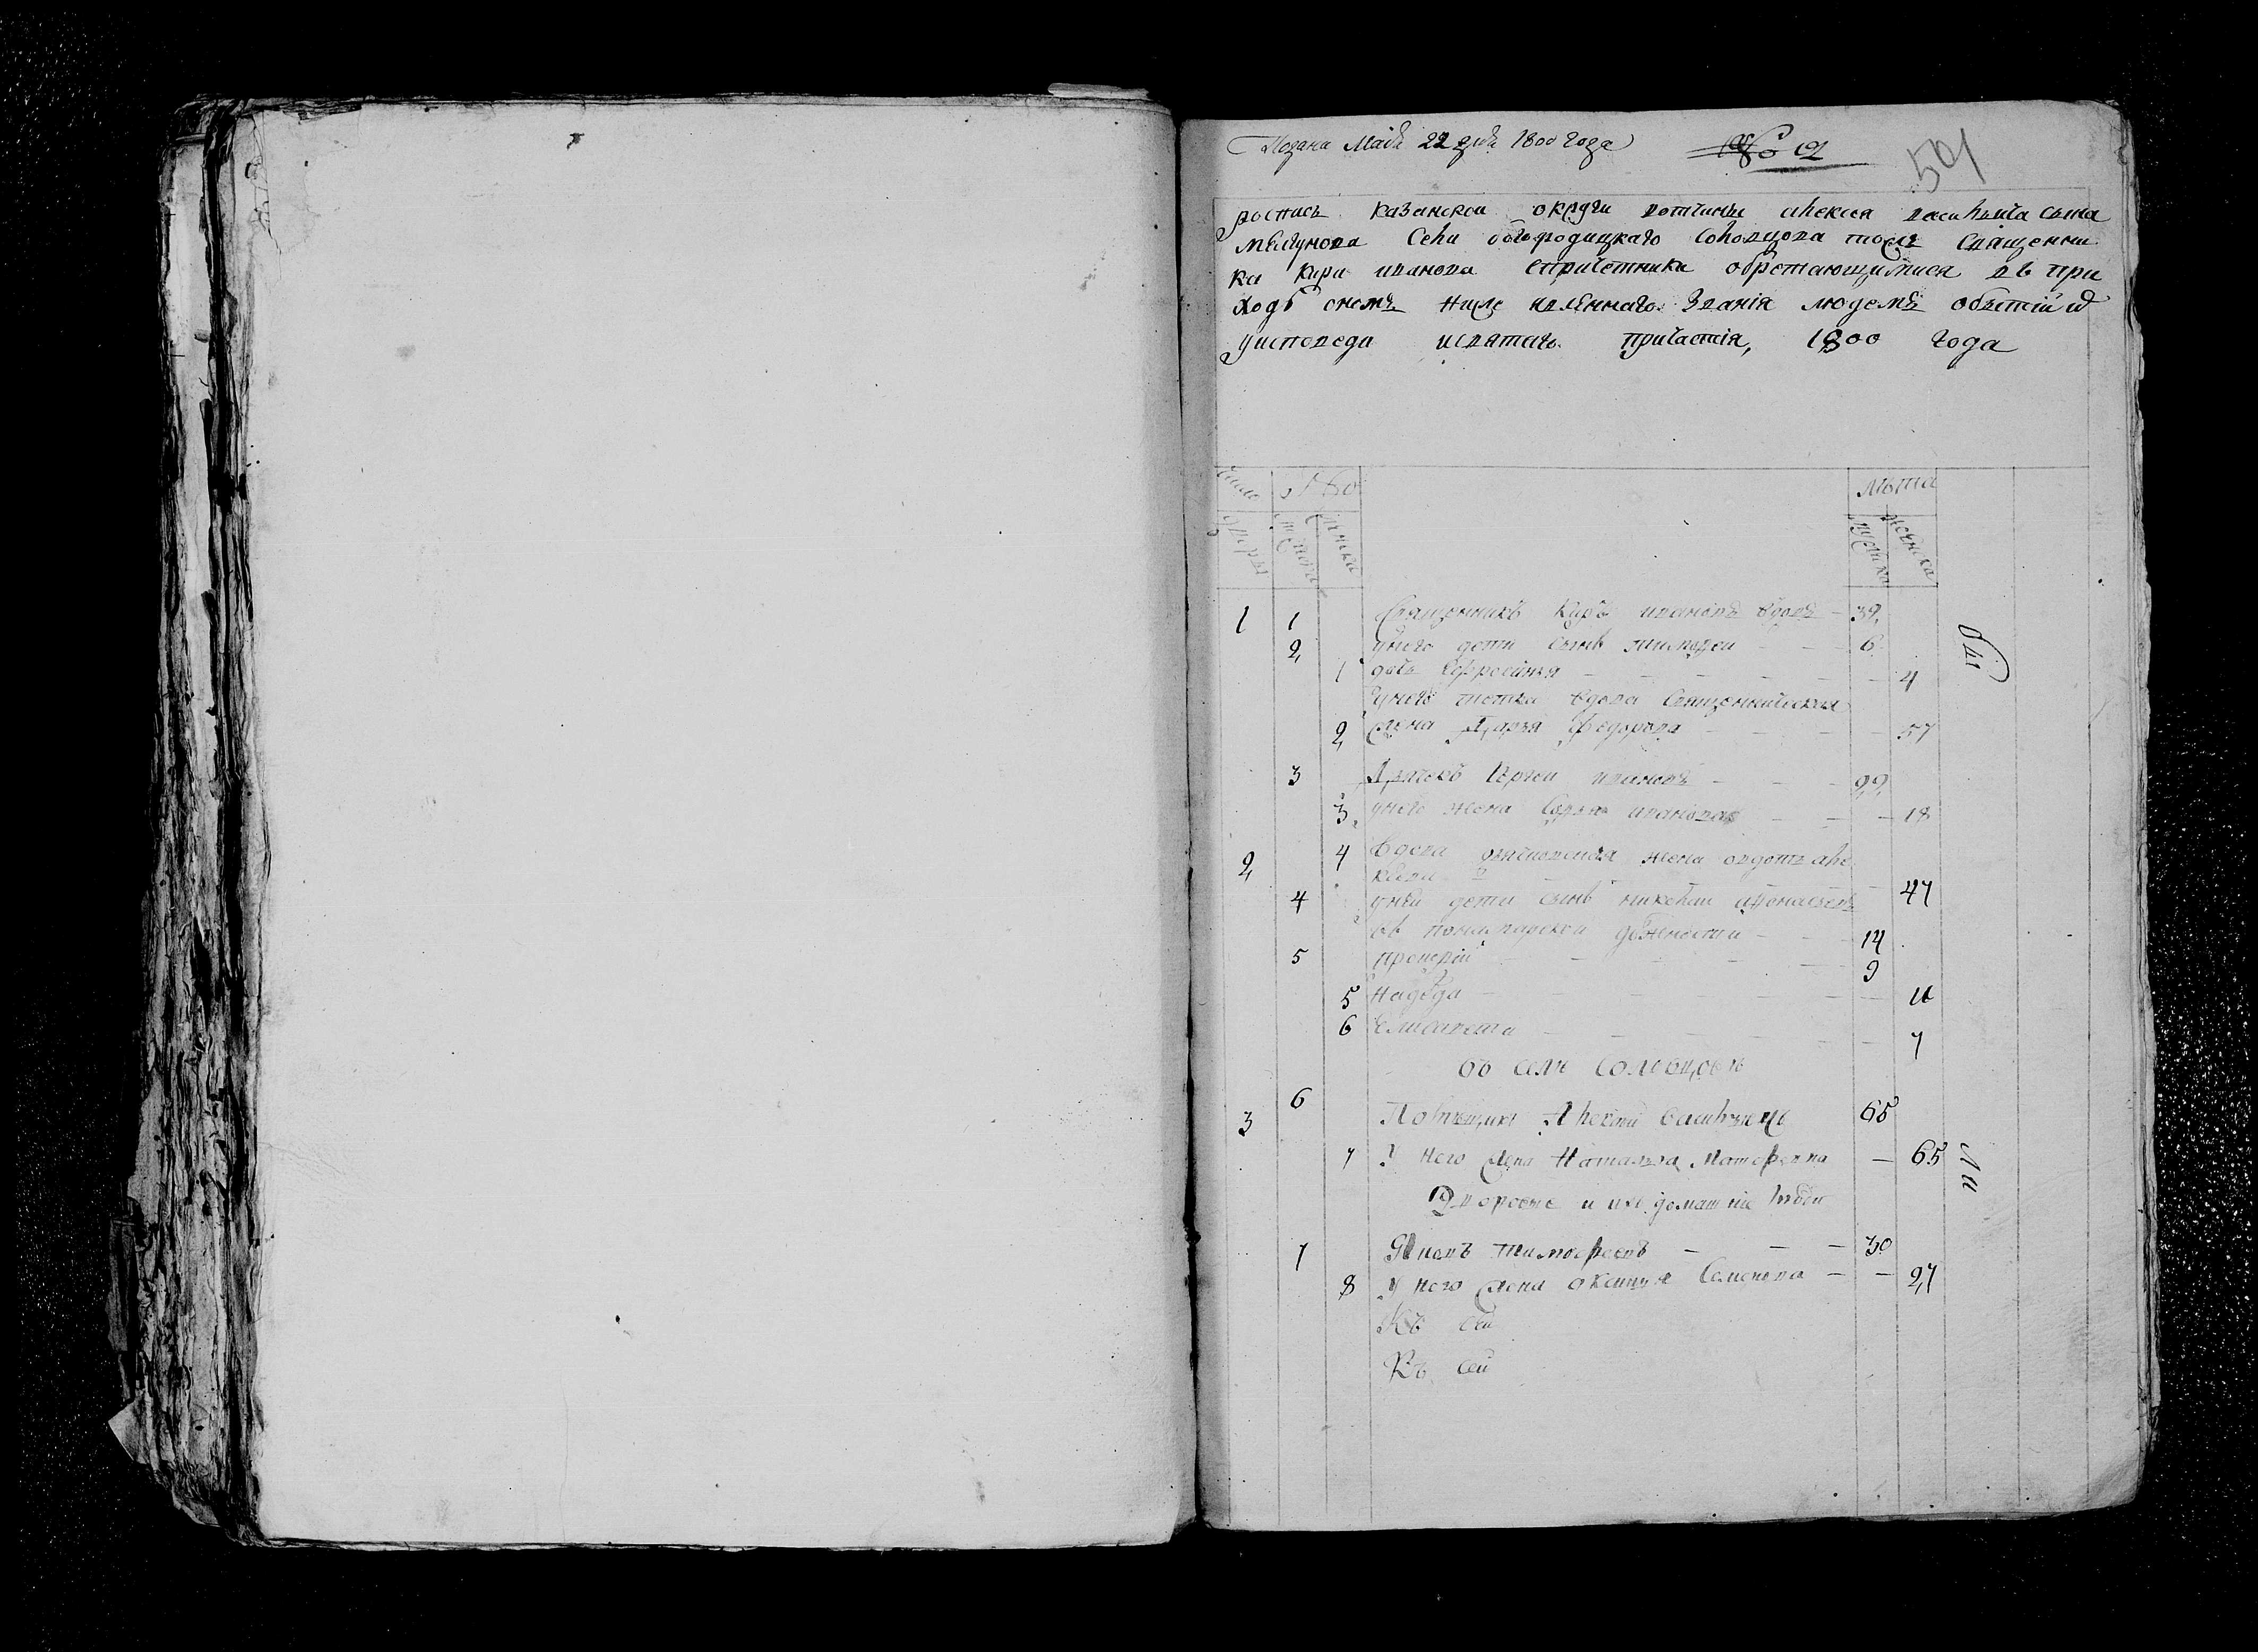 Подана Маия 22 дня 1800 года
№ 12
501
роспись казанской округи вотчины алексея васильича сына
мелгунова села богородицкаго соловцова тожъ священни
ка кира иванова спричетники обретающимися въ при
ходѣ онемъ ниже явленнаго звания людемъ обытии ѿ
уисповеди исвятаго причастия, 1800 года
число
лѣта
дворы
мужеска
женска
1 1 Священникъ Киръ ивановъ вдовъ 39
2 унего дети сынъ тимофей 6
1 дочь Ефросинья 4
унего тетка вдова священническая
2 жена Дарья Федорова 57
3 Дьячекъ Сергей ивановъ 22
3 унего жена Софья иванова 18
2 4 Вдова дьяконовская жена авдотья але
ксеева 47
4 унеи дети сынъ николаи афонасьевъ
въ понамарской должности 14
5 прокопий 9
5 Надежда 11
6 Елисавета 7
въ селе Соловцовѣ
3 6 Помещикъ Алексей Васильевичь 65
7 У него жена Наталья Матфевна 65
Дворовые и ихъ домашние люди
7 Яковъ тимофеевъ 30
8 У него жена оксинья Семенова 27
Къ сей
Къ сей